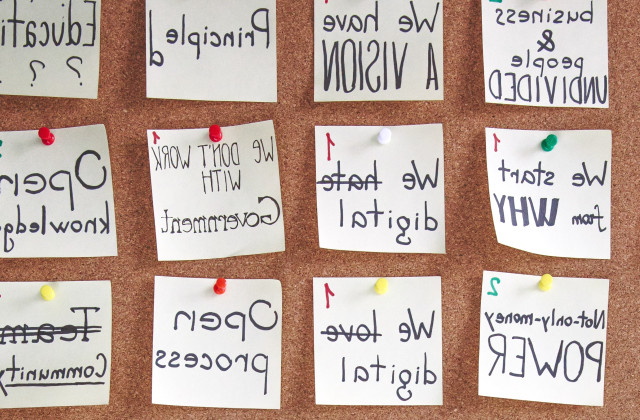 2
business
&
people
UNDIVIDED
We have
A VISION
Principle
d
Educati
? ?
1
We start
from WHY
1
We hate
digital
1
WE DON'T WORK
WITH
Government
Open
knowledg
2
Not-only-money
POWER
1
We love
digital
Open
process
Team
Community